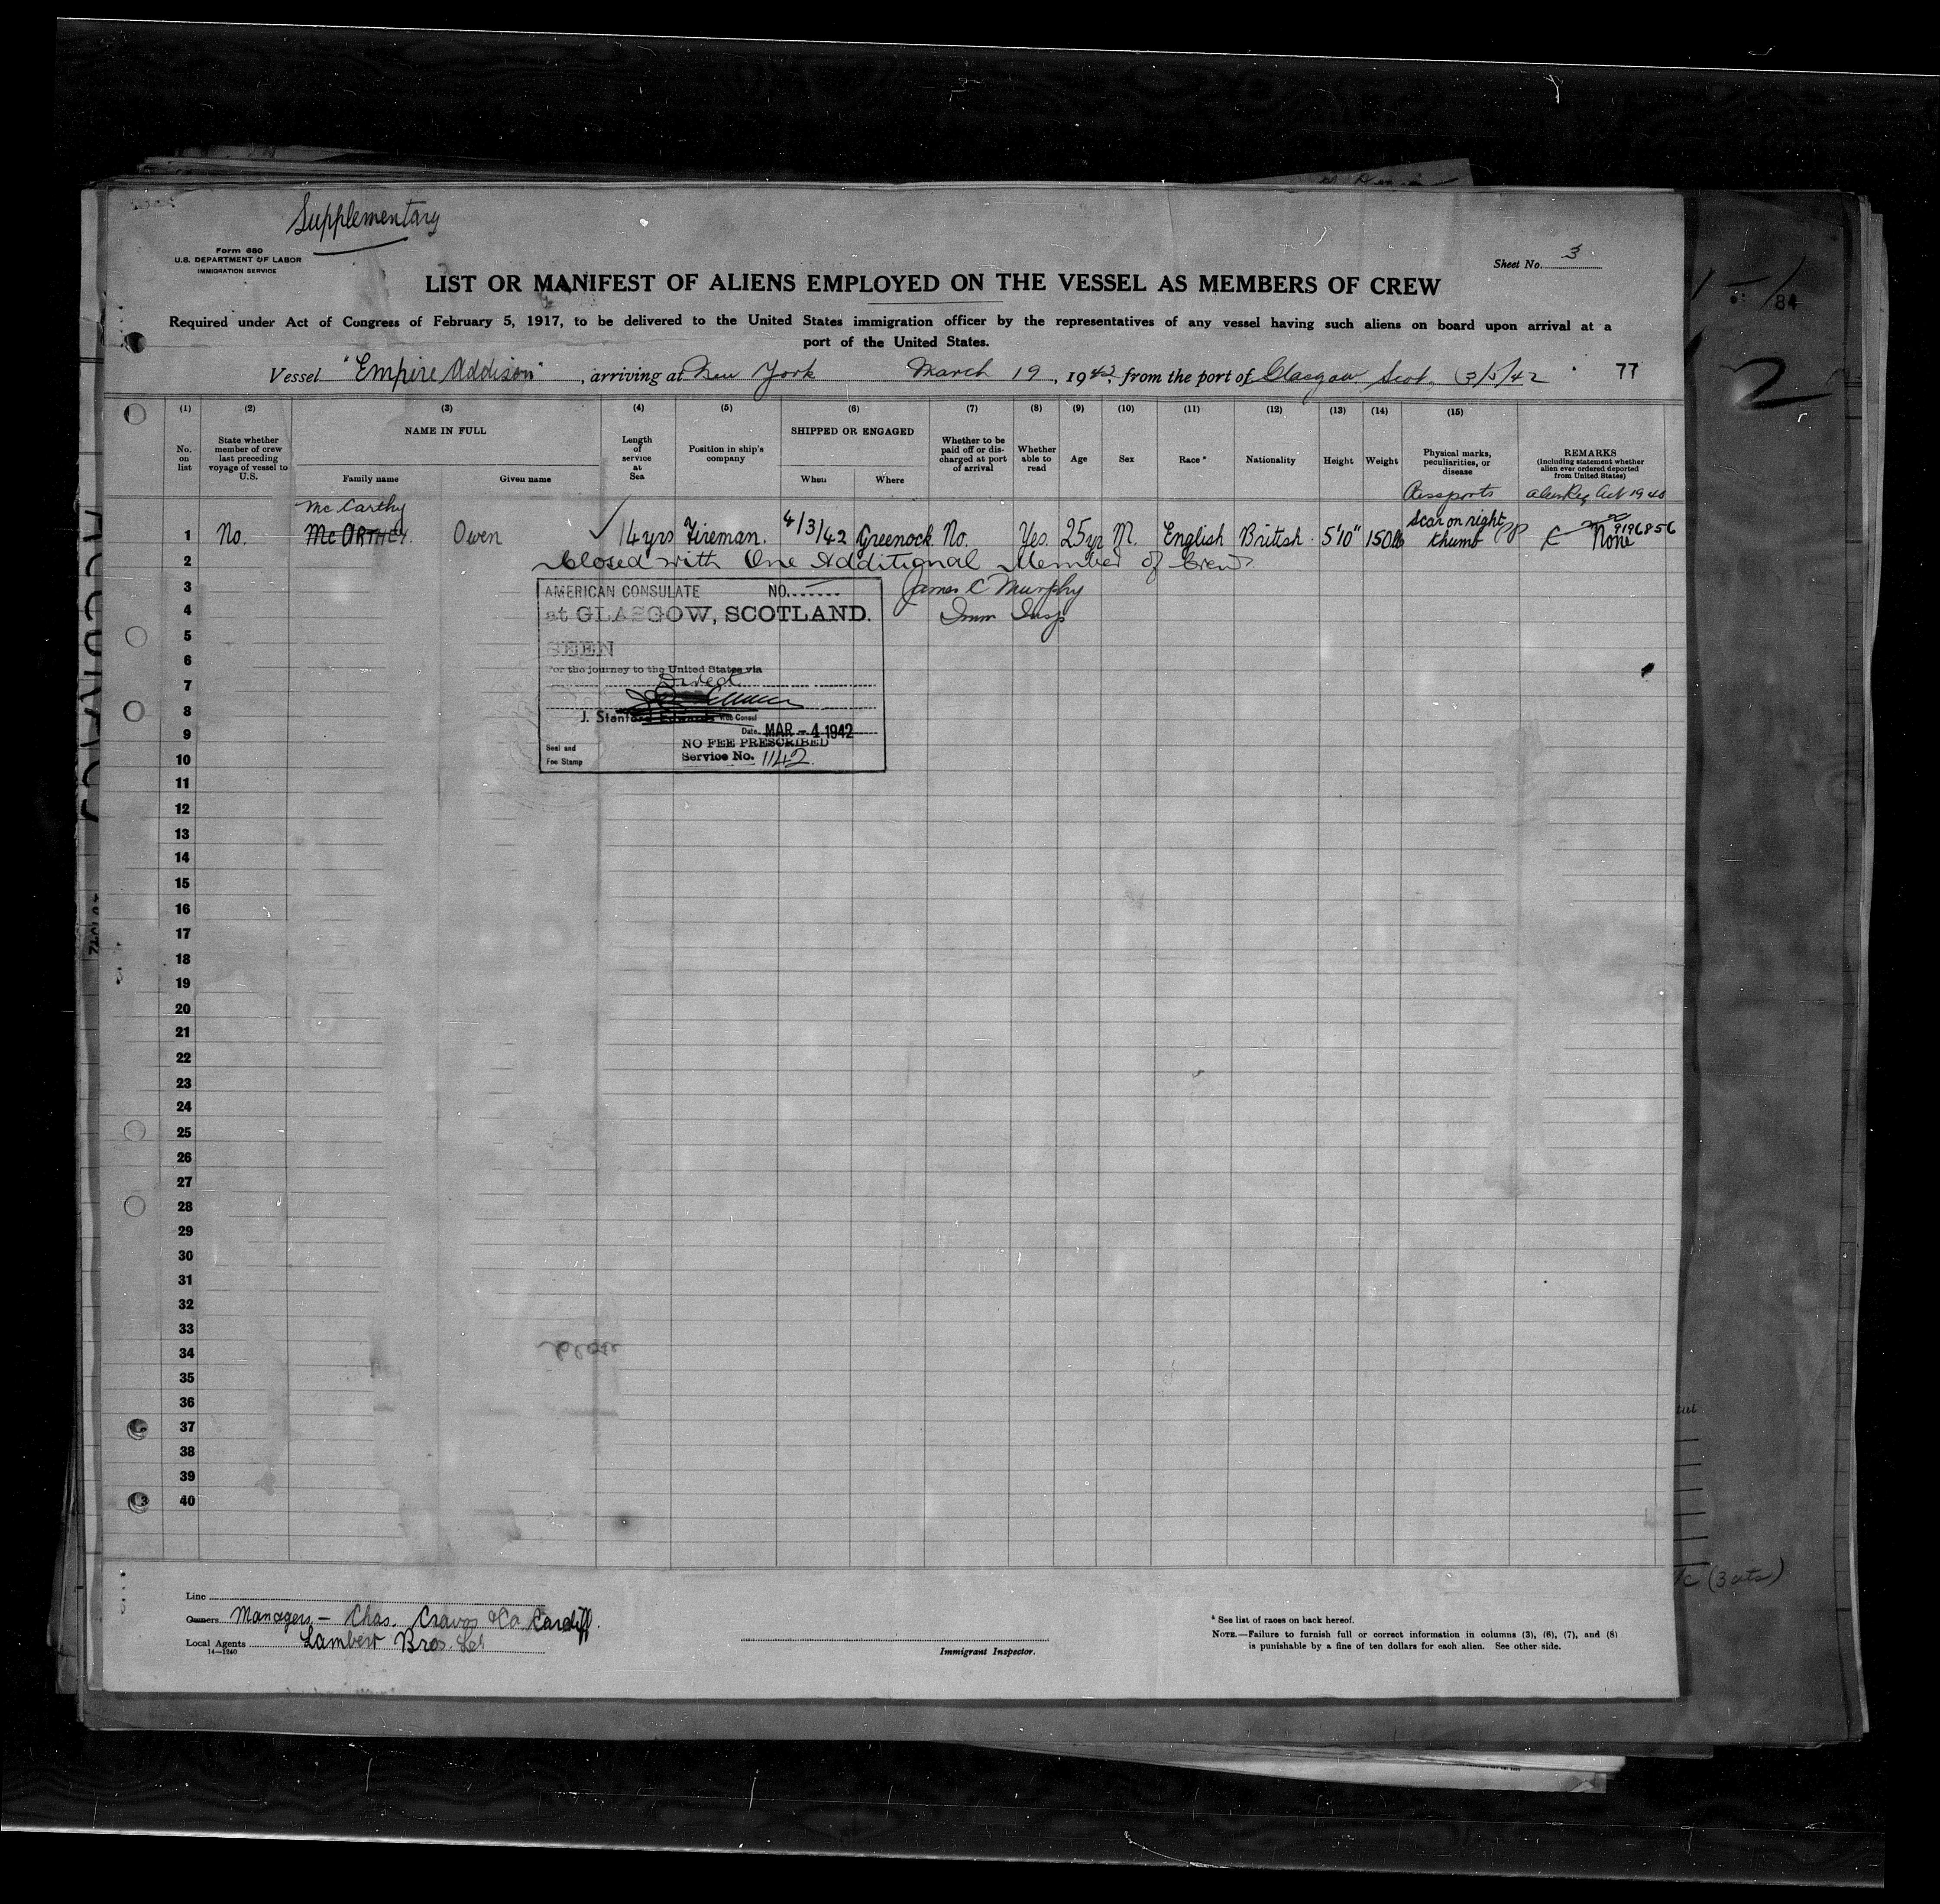 Supplementary
Form 680
U.S. DEPARTMENT OF LABOR
IMMIGRATION SERVICE
Sheet No. 3
LIST OR MANIFEST OF ALIENS EMPLOYED ON THE VESSEL AS MEMBERS OF CREW
84
Required under Act of Congress of February 5, 1917, to be delivered to the United States immigration officer by the representatives of any vessel having such aliens on board upon arrival at a
port of the United States.
Vessel "Empire Addison", arriving at New York March 19, 1942, from the port of Glasgow Scot. 3/5/42 77
2
(1) (2) (3) (4) (5) (6) (7) (8) (9) (10) (11) (12) (13) (14) (15)
No. on list
State whether member of crew last preceding voyage of vessel to U.S.
NAME IN FULL
Family name Given name
Length of service at Sea
Position in ship's company
SHIPPED OR ENGAGED
When Where
Whether to be paid off or discharged at port of arrival
Whether able to read
Age
Sex
Race*
Nationality
Height
Weight
Physical marks, peculiarities, or disease
REMARKS
(Including statement whether alien ever ordered deported from United States)
Passports Alien Reg Act 1940
McCarthy
1 No. McCARTHEY. Owen 14yrs Fireman. 4/3/42 Greenock No. Yes. 25yr M. English British. 5'10" 150lb Scar on right thumb PP None 9196856
2 Closed with One Additional Member of Crew.
3 James C Murphy
4 Imm Insp
AMERICAN CONSULATE NO.
at GLASGOW, SCOTLAND.
SEEN
For the journey to the United States via
Direct
J. Stanford Edwards Vice Consul
Date MAR - 4 1942
NO FEE PRESCRIBED
Seal and Fee Stamp
Service No. 1142
5
6
7
8
9
10
11
12
13
14
15
16
17
18
19
20
21
22
23
24
25
26
27
28
29
30
31
32
33
34
35
36
37
38
39
40
Line
Owners Managers - Chas. Cravos & Co. Cardiff.
Local Agents Lambert Bros. Ltd
14—1240
Immigrant Inspector.
* See list of races on back hereof.
NOTE.—Failure to furnish full or correct information in columns (3), (6), (7), and (8)
is punishable by a fine of ten dollars for each alien. See other side.